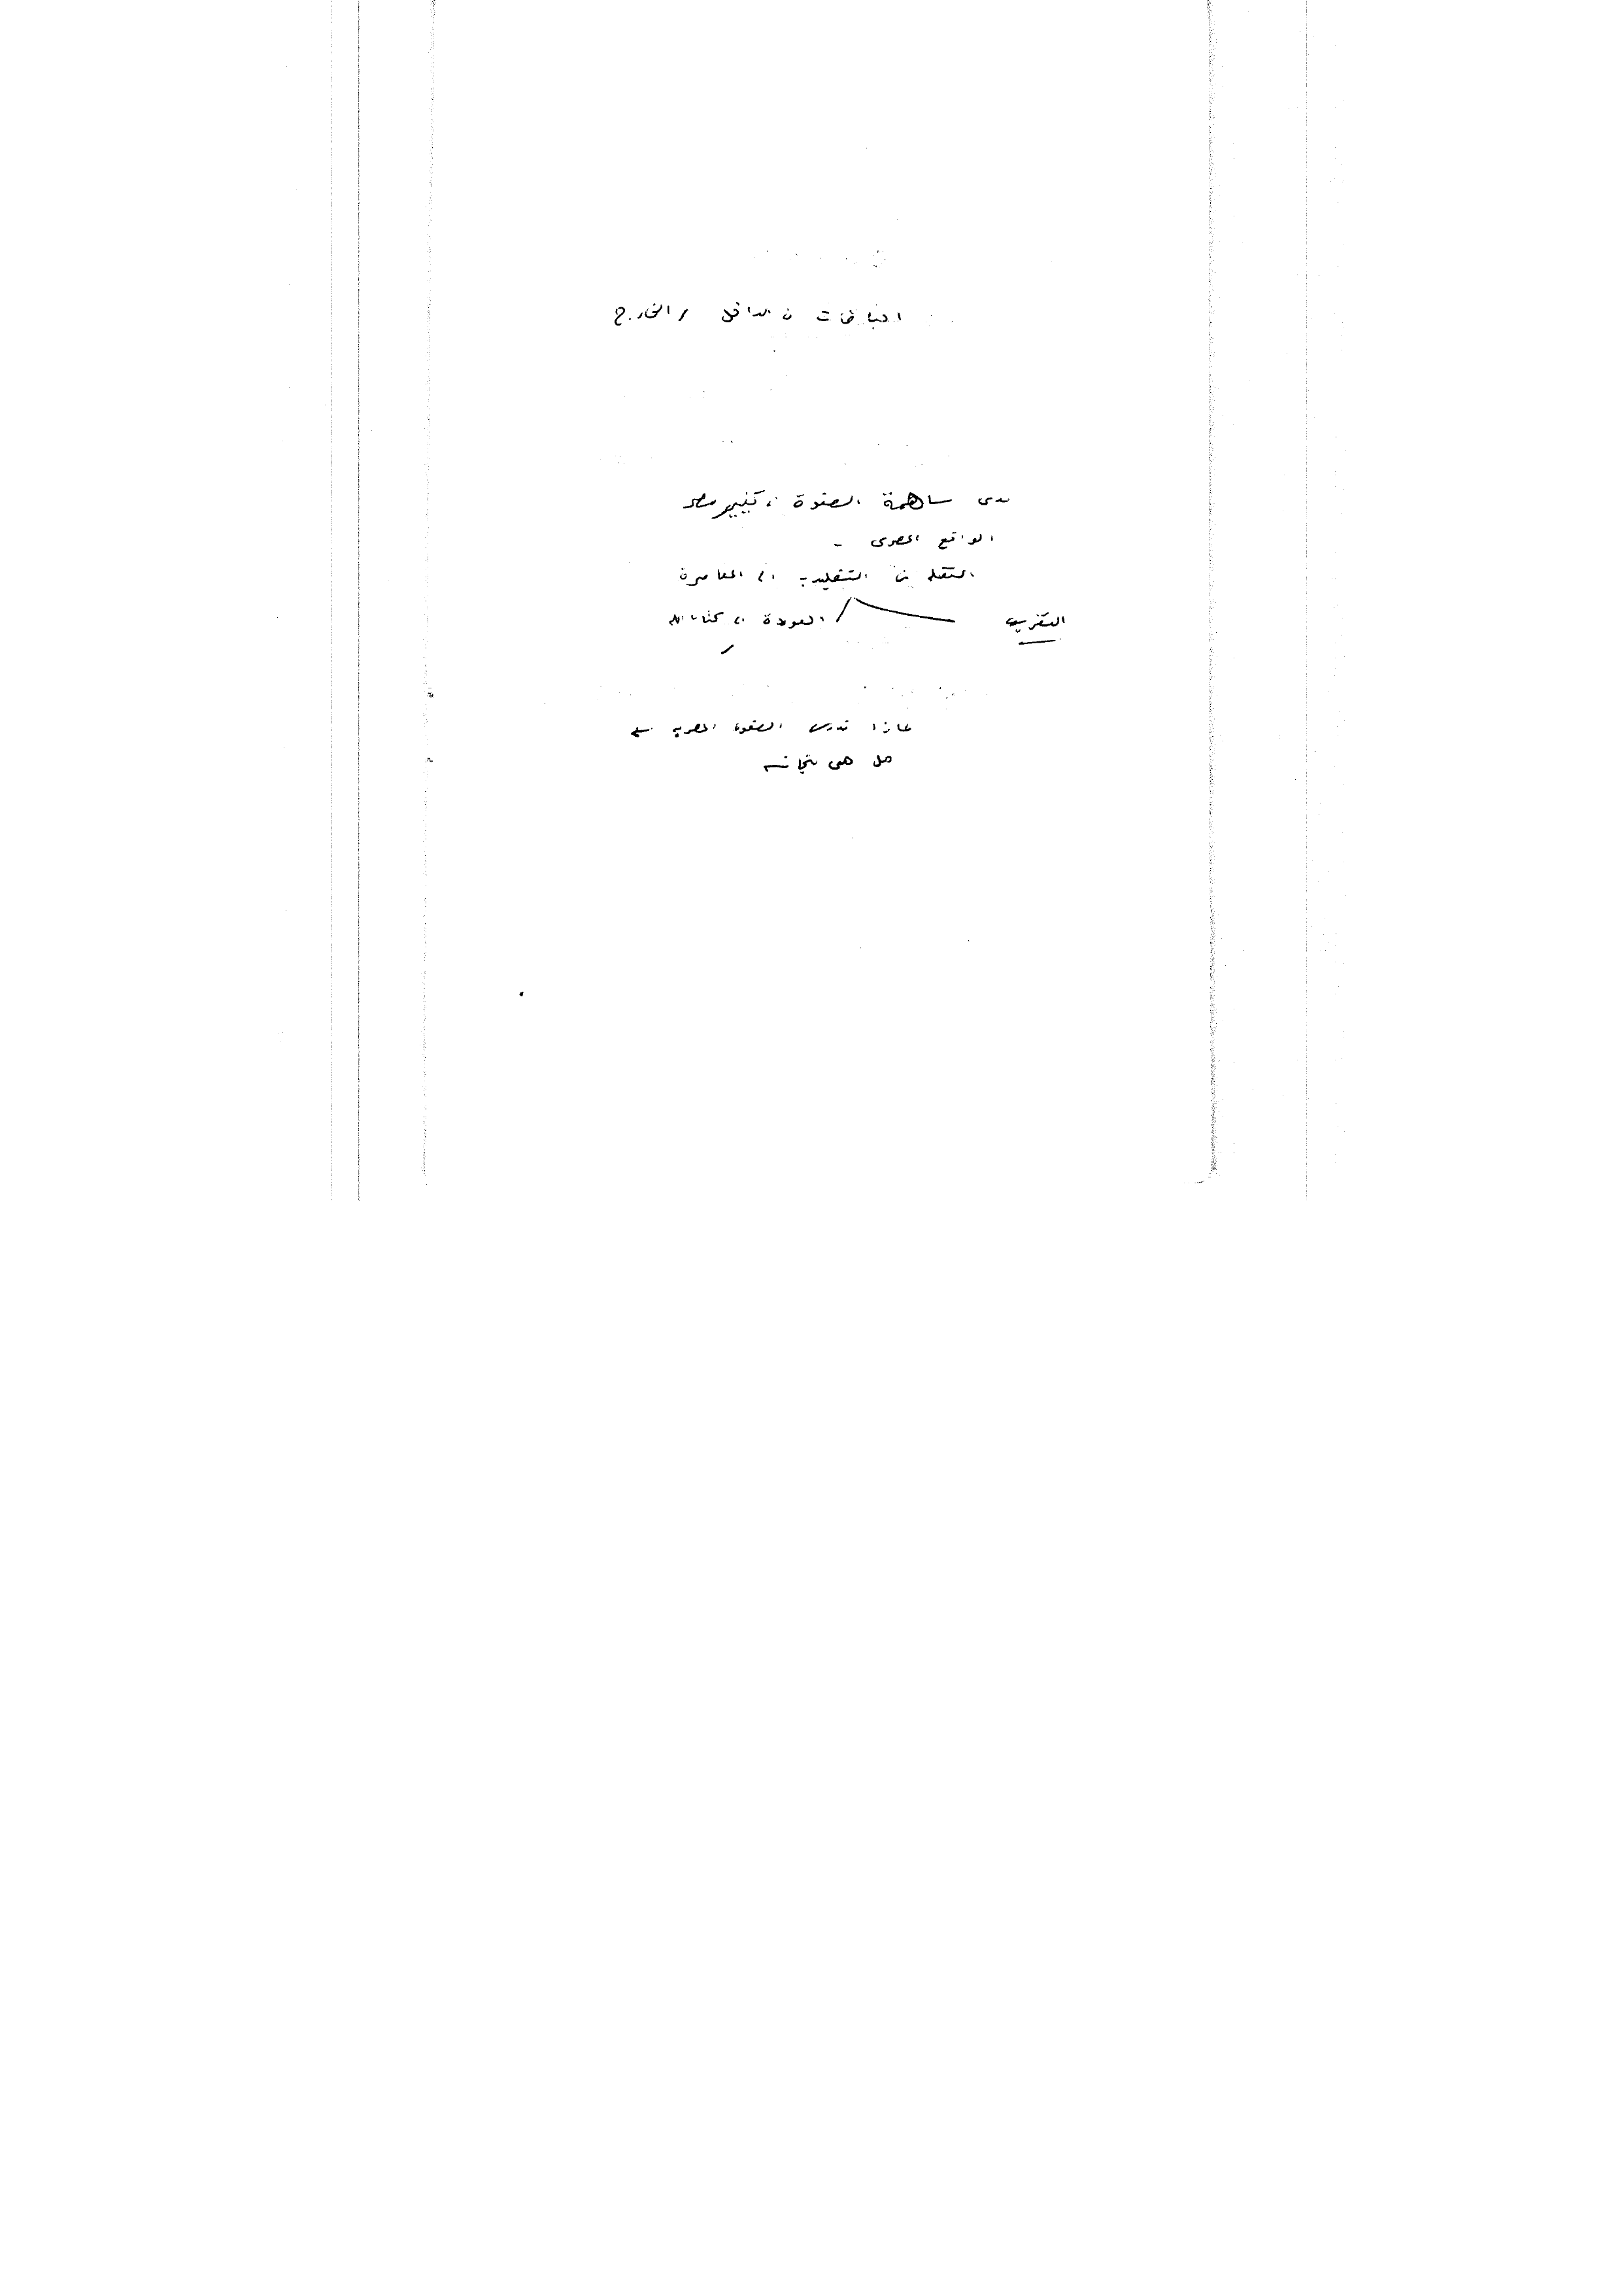 فى الداخل و الخارج
مدى مساهمة الصفوة فى تغيير مصر
الواقع المصرى -
من التقليدية الى المعاصرة
التغريب العودة الى كتاب الله
لماذا ندرس الصفوة المصرية
هل هى متجانسة